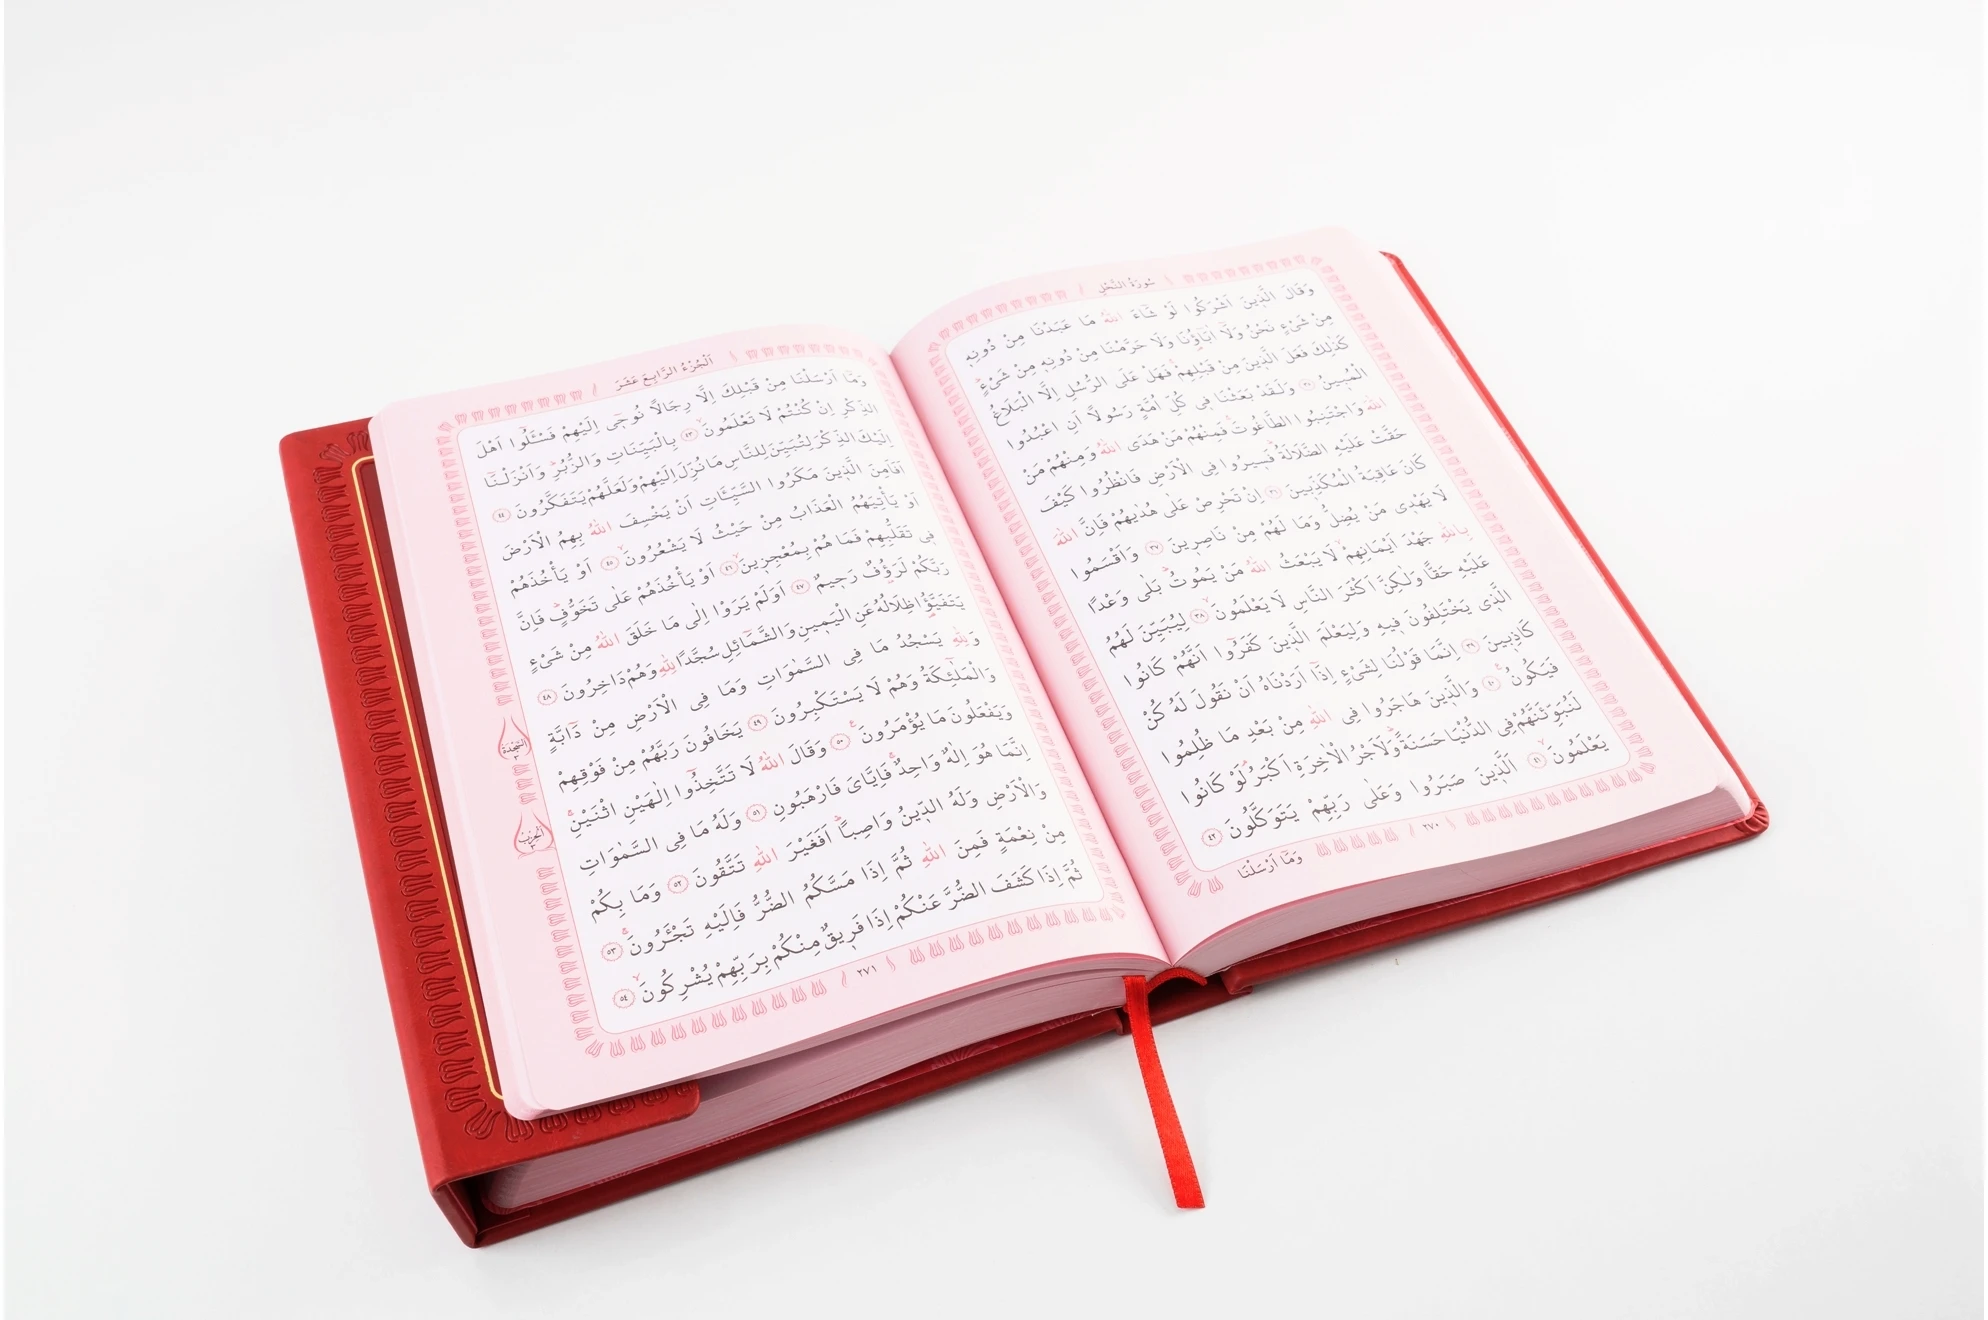 سُورَةُ النَّحْلِ
وَقَالَ الَّذِينَ اَشْرَكُوا لَوْ شَاءَ اللّٰهُ مَا عَبَدْنَا مِنْ دُونِهِ
مِنْ شَيْءٍ نَحْنُ وَلَا اٰبَاؤُنَا وَلَا حَرَّمْنَا مِنْ دُونِهِ مِنْ شَيْءٍ
كَذٰلِكَ فَعَلَ الَّذِينَ مِنْ قَبْلِهِمْ فَهَلْ عَلَى الرُّسُلِ اِلَّا الْبَلَاغُ
الْمُبِينُ ٣٥ وَلَقَدْ بَعَثْنَا فِي كُلِّ اُمَّةٍ رَسُولًا اَنِ اعْبُدُوا
اللّٰهَ وَاجْتَنِبُوا الطَّاغُوتَ فَمِنْهُمْ مَنْ هَدَى اللّٰهُ وَمِنْهُمْ مَنْ
حَقَّتْ عَلَيْهِ الضَّلَالَةُ فَسِيرُوا فِي الْاَرْضِ فَانْظُرُوا كَيْفَ
كَانَ عَاقِبَةُ الْمُكَذِّبِينَ ٣٦ اِنْ تَحْرِصْ عَلٰى هُدٰيهُمْ فَاِنَّ اللّٰهَ
لَا يَهْدِي مَنْ يُضِلُّ وَمَا لَهُمْ مِنْ نَاصِرِينَ ٣٧ وَاَقْسَمُوا
بِاللّٰهِ جَهْدَ اَيْمَانِهِمْ لَا يَبْعَثُ اللّٰهُ مَنْ يَمُوتُ بَلٰى وَعْدًا
عَلَيْهِ حَقًّا وَلٰكِنَّ اَكْثَرَ النَّاسِ لَا يَعْلَمُونَ ٣٨ لِيُبَيِّنَ لَهُمُ
الَّذِي يَخْتَلِفُونَ فِيهِ وَلِيَعْلَمَ الَّذِينَ كَفَرُوا اَنَّهُمْ كَانُوا
كَاذِبِينَ ٣٩ اِنَّمَا قَوْلُنَا لِشَيْءٍ اِذَا اَرَدْنَاهُ اَنْ نَقُولَ لَهُ كُنْ
فَيَكُونُ ٤٠ وَالَّذِينَ هَاجَرُوا فِي اللّٰهِ مِنْ بَعْدِ مَا ظُلِمُوا
لَنُبَوِّئَنَّهُمْ فِي الدُّنْيَا حَسَنَةً وَلَاَجْرُ الْاٰخِرَةِ اَكْبَرُ لَوْ كَانُوا
يَعْلَمُونَ ٤١ اَلَّذِينَ صَبَرُوا وَعَلٰى رَبِّهِمْ يَتَوَكَّلُونَ ٤٢
٢٧٠
وَمَا اَرْسَلْنَا
اَلْجُزْءُ الرَّابِعَ عَشَرَ
وَمَا اَرْسَلْنَا مِنْ قَبْلِكَ اِلَّا رِجَالًا نُوحِي اِلَيْهِمْ فَسْـَٔلُوا اَهْلَ
الذِّكْرِ اِنْ كُنْتُمْ لَا تَعْلَمُونَ ٤٣ بِالْبَيِّنَاتِ وَالزُّبُرِ وَاَنْزَلْنَا
اِلَيْكَ الذِّكْرَ لِتُبَيِّنَ لِلنَّاسِ مَا نُزِّلَ اِلَيْهِمْ وَلَعَلَّهُمْ يَتَفَكَّرُونَ ٤٤
اَفَاَمِنَ الَّذِينَ مَكَرُوا السَّيِّئَاتِ اَنْ يَخْسِفَ اللّٰهُ بِهِمُ الْاَرْضَ
اَوْ يَأْتِيَهُمُ الْعَذَابُ مِنْ حَيْثُ لَا يَشْعُرُونَ ٤٥ اَوْ يَأْخُذَهُمْ
فِي تَقَلُّبِهِمْ فَمَا هُمْ بِمُعْجِزِينَ ٤٦ اَوْ يَأْخُذَهُمْ عَلٰى تَخَوُّفٍ فَاِنَّ
رَبَّكُمْ لَرَؤُفٌ رَحِيمٌ ٤٧ اَوَلَمْ يَرَوْا اِلٰى مَا خَلَقَ اللّٰهُ مِنْ شَيْءٍ
يَتَفَيَّؤُا ظِلَالُهُ عَنِ الْيَمِينِ وَالشَّمَائِلِ سُجَّدًا لِلّٰهِ وَهُمْ دَاخِرُونَ ٤٨
وَلِلّٰهِ يَسْجُدُ مَا فِي السَّمٰوَاتِ وَمَا فِي الْاَرْضِ مِنْ دَابَّةٍ
وَالْمَلٰئِكَةُ وَهُمْ لَا يَسْتَكْبِرُونَ ٤٩ يَخَافُونَ رَبَّهُمْ مِنْ فَوْقِهِمْ
وَيَفْعَلُونَ مَا يُؤْمَرُونَ ٥٠ وَقَالَ اللّٰهُ لَا تَتَّخِذُوا اِلٰهَيْنِ اثْنَيْنِ
اِنَّمَا هُوَ اِلٰهٌ وَاحِدٌ فَاِيَّايَ فَارْهَبُونِ ٥١ وَلَهُ مَا فِي السَّمٰوَاتِ
وَالْاَرْضِ وَلَهُ الدِّينُ وَاصِبًا اَفَغَيْرَ اللّٰهِ تَتَّقُونَ ٥٢ وَمَا بِكُمْ
مِنْ نِعْمَةٍ فَمِنَ اللّٰهِ ثُمَّ اِذَا مَسَّكُمُ الضُّرُّ فَاِلَيْهِ تَجْـَٔرُونَ ٥٣
ثُمَّ اِذَا كَشَفَ الضُّرَّ عَنْكُمْ اِذَا فَرِيقٌ مِنْكُمْ بِرَبِّهِمْ يُشْرِكُونَ ٥٤
اَلسَّجْدَة
٣
اَلْحِزْب
٣
٢٧١